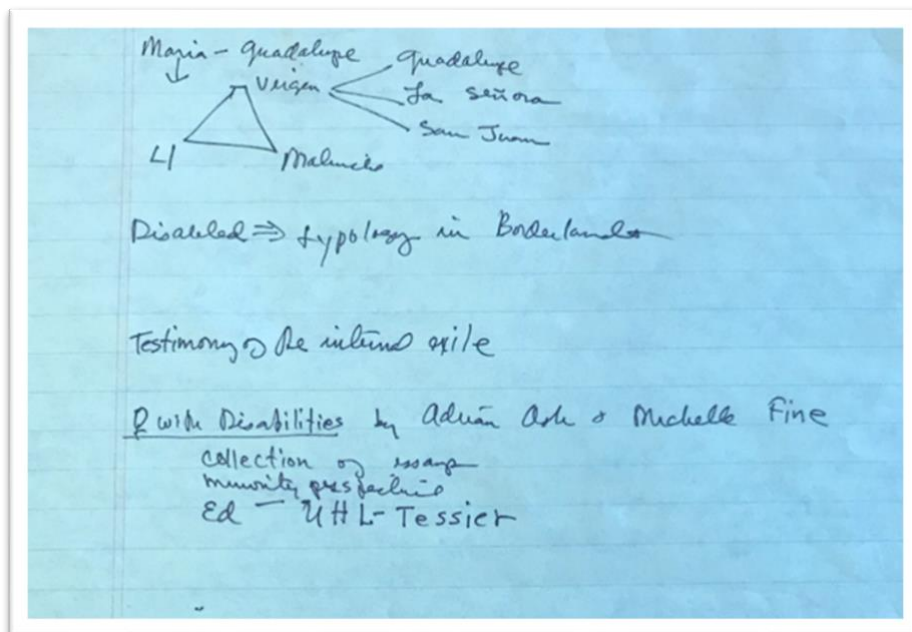 Maria - Guadalupe
Virgen
Guadalupe
La Señora
San Juan
Ll
Malinche
Disabled ⇒ typology in Borderlands
Testimony of the internal exile
♀ with Disabilities by Adrian Ash & Michelle Fine
collection of essays
minority perspective
Ed - UHL - Tessier